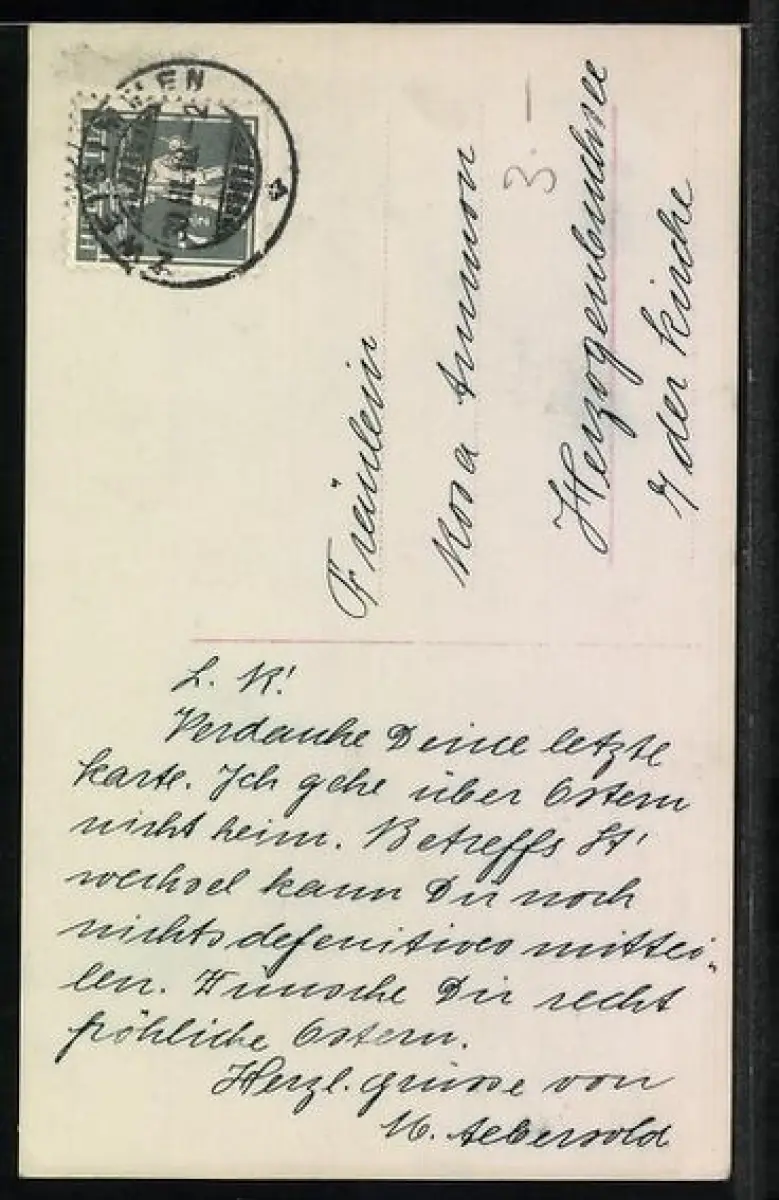 Fräulein
Rosa Ammon
Herzogenbuchsee
3.–
der Kirche
L. R!
Verdanke Deine letzte
Karte. Ich gehe über Ostern
nicht heim. Betreffs St'
wechsel kann Dir noch
nichts defenitives mittei-
len. Wünsche Dir recht
fröhliche Ostern.
Herzl. Grüsse von
M. Aebersold